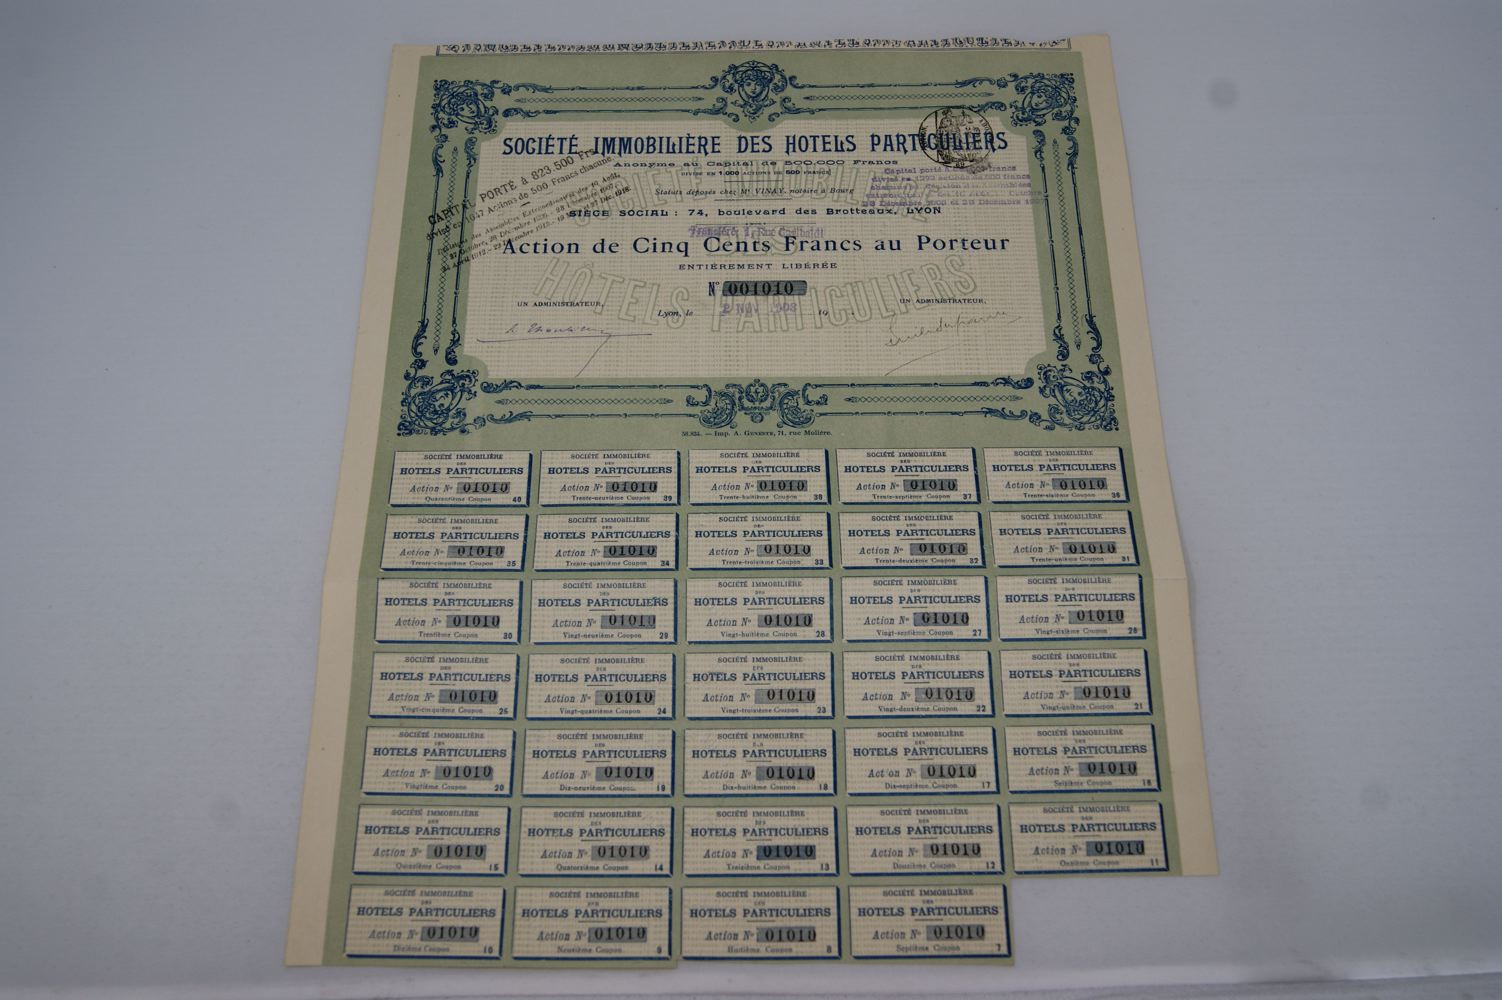 SOCIÉTÉ IMMOBILIÈRE DES HOTELS PARTICULIERS
Anonyme au Capital de 500.000 Francs
DIVISÉ EN 1.000 ACTIONS DE 500 FRANCS
Statuts déposés chez Me VINAY, notaire à Bourg
SIÈGE SOCIAL : 74, boulevard des Brotteaux, LYON
Transféré: 1, Rue Garibaldi
CAPITAL PORTÉ à 823.500 Frs
divisé en 1647 Actions de 500 Francs chacune
Capital porté à
francs
Action de Cinq Cents Francs au Porteur
ENTIÈREMENT LIBÉRÉE
No 001010
UN ADMINISTRATEUR,
Lyon, le 2 NOV 1908 19
UN ADMINISTRATEUR,
SOCIÉTÉ IMMOBILIÈRE
DES
HÔTELS PARTICULIERS
58.834. — Imp. A. GENESTE, 71, rue Molière.
SOCIÉTÉ IMMOBILIÈRE
DES
HOTELS PARTICULIERS
Action No 01010
Quarantième Coupon 40
SOCIÉTÉ IMMOBILIÈRE
DES
HOTELS PARTICULIERS
Action No 01010
Trente-neuvième Coupon 39
SOCIÉTÉ IMMOBILIÈRE
DES
HOTELS PARTICULIERS
Action No 01010
Trente-huitième Coupon 38
SOCIÉTÉ IMMOBILIÈRE
DES
HOTELS PARTICULIERS
Action No 01010
Trente-septième Coupon 37
SOCIÉTÉ IMMOBILIÈRE
DES
HOTELS PARTICULIERS
Action No 01010
Trente-sixième Coupon 36
SOCIÉTÉ IMMOBILIÈRE
DES
HOTELS PARTICULIERS
Action No 01010
Trente-cinquième Coupon 35
SOCIÉTÉ IMMOBILIÈRE
DES
HOTELS PARTICULIERS
Action No 01010
Trente-quatrième Coupon 34
SOCIÉTÉ IMMOBILIÈRE
DES
HOTELS PARTICULIERS
Action No 01010
Trente-troisième Coupon 33
SOCIÉTÉ IMMOBILIÈRE
DES
HOTELS PARTICULIERS
Action No 01010
Trente-deuxième Coupon 32
SOCIÉTÉ IMMOBILIÈRE
DES
HOTELS PARTICULIERS
Action No 01010
Trente-unième Coupon 31
SOCIÉTÉ IMMOBILIÈRE
DES
HOTELS PARTICULIERS
Action No 01010
Trentième Coupon 30
SOCIÉTÉ IMMOBILIÈRE
DES
HOTELS PARTICULIERS
Action No 01010
Vingt-neuvième Coupon 29
SOCIÉTÉ IMMOBILIÈRE
DES
HOTELS PARTICULIERS
Action No 01010
Vingt-huitième Coupon 28
SOCIÉTÉ IMMOBILIÈRE
DES
HOTELS PARTICULIERS
Action No 01010
Vingt-septième Coupon 27
SOCIÉTÉ IMMOBILIÈRE
DES
HOTELS PARTICULIERS
Action No 01010
Vingt-sixième Coupon 26
SOCIÉTÉ IMMOBILIÈRE
DES
HOTELS PARTICULIERS
Action No 01010
Vingt-cinquième Coupon 25
SOCIÉTÉ IMMOBILIÈRE
DES
HOTELS PARTICULIERS
Action No 01010
Vingt-quatrième Coupon 24
SOCIÉTÉ IMMOBILIÈRE
DES
HOTELS PARTICULIERS
Action No 01010
Vingt-troisième Coupon 23
SOCIÉTÉ IMMOBILIÈRE
DES
HOTELS PARTICULIERS
Action No 01010
Vingt-deuxième Coupon 22
SOCIÉTÉ IMMOBILIÈRE
DES
HOTELS PARTICULIERS
Action No 01010
Vingt-unième Coupon 21
SOCIÉTÉ IMMOBILIÈRE
DES
HOTELS PARTICULIERS
Action No 01010
Vingtième Coupon 20
SOCIÉTÉ IMMOBILIÈRE
DES
HOTELS PARTICULIERS
Action No 01010
Dix-neuvième Coupon 19
SOCIÉTÉ IMMOBILIÈRE
DES
HOTELS PARTICULIERS
Action No 01010
Dix-huitième Coupon 18
SOCIÉTÉ IMMOBILIÈRE
DES
HOTELS PARTICULIERS
Action No 01010
Dix-septième Coupon 17
SOCIÉTÉ IMMOBILIÈRE
DES
HOTELS PARTICULIERS
Action No 01010
Seizième Coupon 16
SOCIÉTÉ IMMOBILIÈRE
DES
HOTELS PARTICULIERS
Action No 01010
Quinzième Coupon 15
SOCIÉTÉ IMMOBILIÈRE
DES
HOTELS PARTICULIERS
Action No 01010
Quatorzième Coupon 14
SOCIÉTÉ IMMOBILIÈRE
DES
HOTELS PARTICULIERS
Action No 01010
Treizième Coupon 13
SOCIÉTÉ IMMOBILIÈRE
DES
HOTELS PARTICULIERS
Action No 01010
Douzième Coupon 12
SOCIÉTÉ IMMOBILIÈRE
DES
HOTELS PARTICULIERS
Action No 01010
Onzième Coupon 11
SOCIÉTÉ IMMOBILIÈRE
DES
HOTELS PARTICULIERS
Action No 01010
Dixième Coupon 10
SOCIÉTÉ IMMOBILIÈRE
DES
HOTELS PARTICULIERS
Action No 01010
Neuvième Coupon 9
SOCIÉTÉ IMMOBILIÈRE
DES
HOTELS PARTICULIERS
Action No 01010
Huitième Coupon 8
SOCIÉTÉ IMMOBILIÈRE
DES
HOTELS PARTICULIERS
Action No 01010
Septième Coupon 7